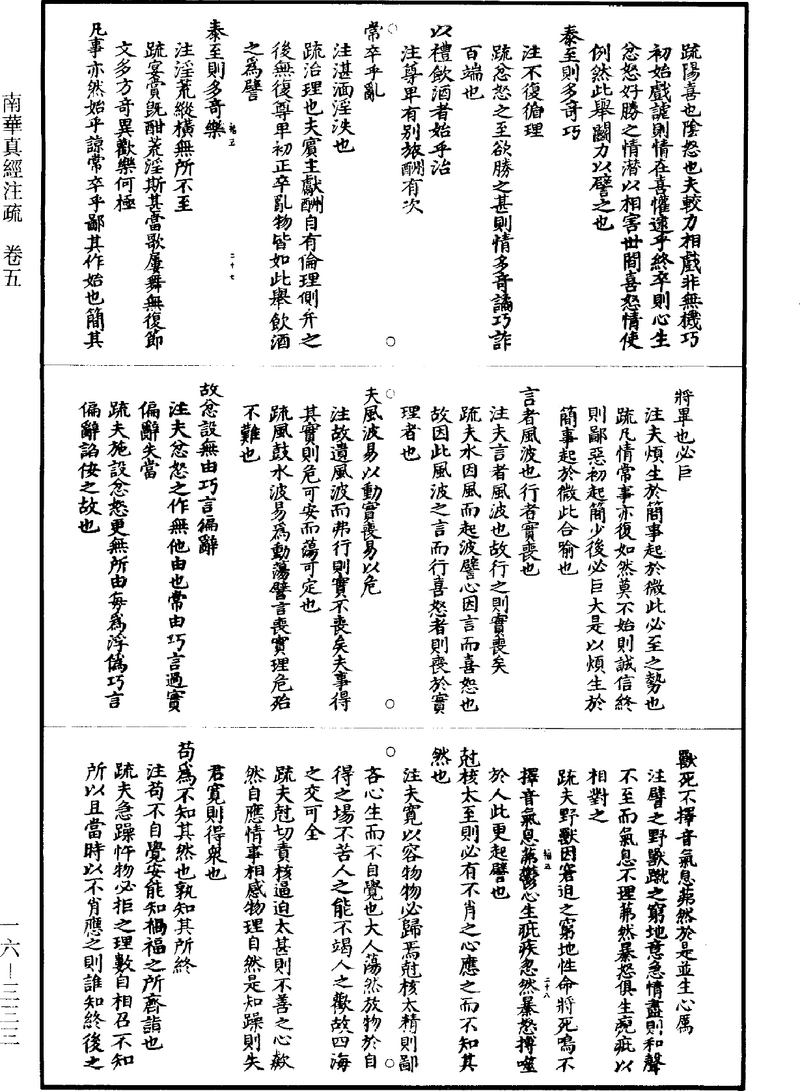 南華真經注疏　卷五
一六—三三三
疏陽喜也陰怒也夫較力相戲非無機巧
初始戲謔則情在喜懽逮乎終卒則心生
忿怒好勝之情潛以相害世間喜怒情使
例然此舉鬭力以譬之也
泰至則多奇巧
注不復循理
疏忿怒之至欲勝之甚則情多奇譎巧詐
百端也
以禮飲酒者始乎治
注尊卑有別旅酬有次
常卒乎亂
注湛湎淫泆也
疏治理也夫賓主獻酬自有倫理側弁之
後無復尊卑初正卒亂物皆如此舉飲酒
之爲譬
泰至則多奇樂
注淫荒縱橫無所不至
疏宴賞既酣荒淫斯甚當歌屢舞無復節
文多方奇異歡樂何極
凡事亦然始乎諒常卒乎鄙其作始也簡其
將畢也必巨
注夫煩生於簡事起於微此必至之勢也
疏凡情常事亦復如然莫不始則誠信終
則鄙惡初起簡少後必巨大是以煩生於
簡事起於微此合喻也
言者風波也行者實喪也
注夫言者風波也故行之則實喪矣
疏夫水因風而起波譬心因言而喜怒也
故因此風波之言而行喜怒者則喪於實
理者也
夫風波易以動實喪易以危
注故遺風波而弗行則實不喪矣夫事得
其實則危可安而蕩可定也
疏風鼓水波易爲動蕩譬言喪實理危殆
不難也
故忿設無由巧言偏辭
注夫忿怒之作無他由也常由巧言過實
偏辭失當
疏夫施設忿怒更無所由每爲浮僞巧言
偏辭諂佞之故也
獸死不擇音氣息茀然於是並生心厲
注譬之野獸蹴之窮地意急情盡則和聲
不至而氣息不理茀然暴怒俱生疵疵以
相對之
疏夫野獸因窘迫之窮地性命將死鳴不
擇音氣息茀鬱心生疵疾忽然暴怒搏噬
於人此更起譬也
尅核太至則必有不肖之心應之而不知其
然也
注夫寬以容物物必歸焉尅核太精則鄙
吝心生而不自覺也大人蕩然放物於自
得之場不苦人之能不竭人之歡故四海
之交可全
疏夫尅切責核逼迫太甚則不善之心歘
然自應情事相感物理自然是知躁則失
君寬則得衆也
苟爲不知其然也孰知其所終
注苟不自覺安能知禍福之所齊詣也
疏夫急躁忤物必拒之理數自相召不知
所以且當時以不肖應之則誰知終後之